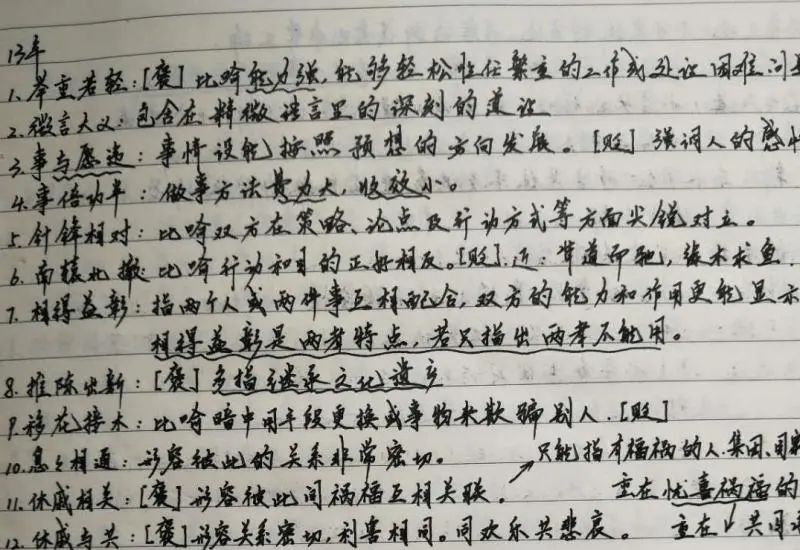 13年
1.举重若轻：[褒] 比喻能力强，能够轻松胜任繁重的工作或处理困难问
2.微言大义：包含在精微语言里的深刻的道理
3.事与愿违：事情没能按照预想的方向发展。[贬] 强调人的感
4.事倍功半：做事方法费力大，收效小。
5.针锋相对：比喻双方在策略、论点及行动方式等方面尖锐对立。
6.南辕北辙：比喻行动和目的正好相反。[贬].近：背道而驰，缘木求鱼.
7.相得益彰：指两个人或两件事互相配合，双方的能力和作用更能显示
相得益彰是两者特点，若只指出两者不能用。
8.推陈出新：[褒] 多指继承文化遗产
9.移花接木：比喻暗中用手段更换或事物来欺骗别人.[贬]
10.息息相通：形容彼此的关系非常密切。
只能指有福祸的人.集团、
11.休戚相关：[褒] 形容彼此间祸福互相关联。
重在忧喜祸福的
12.休戚与共：[褒] 形容关系密切，利害相同。同欢乐共悲哀。 重在 共同